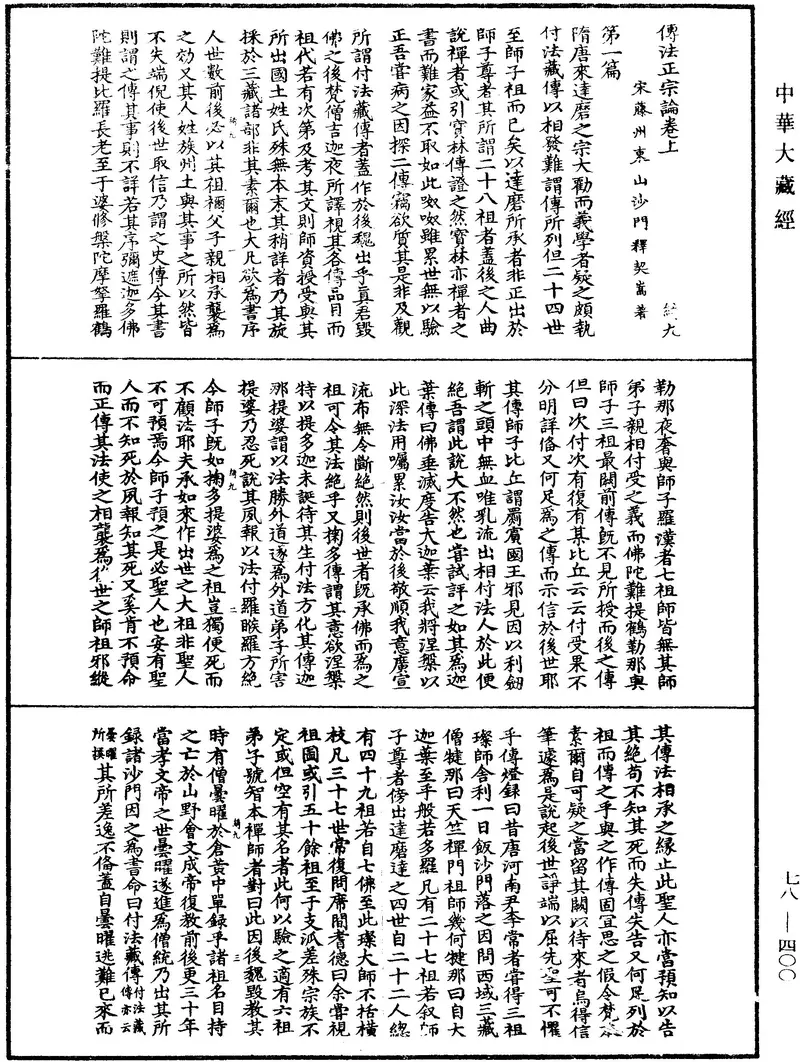 中華大藏經
傳法正宗論卷上
宋藤州東山沙門釋契嵩著
第一篇
隋唐來達磨之宗大勸而義學者疑之頗執
付法藏傳以相發難謂傳所列但二十四世
至師子祖而已矣以達磨所承者非正出於
師子尊者其所謂二十八祖者蓋後之人曲
說禪者或引寶林傳證之然寶林亦禪者之
書而難家益不取如此呶呶雖累世無以驗
正吾嘗病之因探二傳竊欲質其是非及觀
所謂付法藏傳者蓋作於後魏出乎真君毀
佛之後梵僧吉迦夜所譯視其各傳品目而
祖代若有次第及考其文則師資授受與其
所出國土姓氏殊無本末其稍詳者乃其旋
採於三藏諸部非其素爾也大凡欲為書序
人世數前後必以其祖禰父子親相承襲為
之効又其人姓族州土與其事之所以然皆
不失端倪使後世取信乃謂之史傳今其書
則謂之傳其事則不詳若其序彌遮迦多佛
陀難提比羅長老至于婆修槃陀摩拏羅鶴
勒那夜奢與師子羅漢者七祖師皆無其師
弟子親相付受之義而佛陀難提鶴勒那與
師子三祖最闕前傳既不見所授而後之傳
但曰次付次有復有某比丘云云付受果不
分明詳俻又何足為之傳而示信於後世耶
其傳師子比丘謂罽賓國王邪見因以利劒
斬之頭中無血唯乳流出相付法人於此便
絕吾謂此說大不然也嘗試評之如其為迦
葉傳曰佛垂滅度告大迦葉云我將涅槃以
此深法用囑累汝汝當於後敬順我意廣宣
流布無令斷絕然則後世者既承佛而為之
祖可令其法絕乎又掬多傳謂其意欲涅槃
特以提多迦未誕待其生付法方化其傳迦
那提婆謂以法勝外道遂為外道弟子所害
提婆乃忍死說其夙報以法付羅睺羅方絕
今師子既如掬多提婆為之祖豈獨便死而
不顧法耶夫承如來作出世之大祖非聖人
不可預焉今師子預之是必聖人也安有聖
人而不知死於夙報知其死又奚肯不預命
而正傳其法使之相襲為後世之師祖邪縱
其傳法相承之緣止此聖人亦當預知以告
其絕苟不知其死而失傳失告又何足列於
祖而傳之乎與之作傳固宜思之假令梵本
素爾自可疑之當留其闕以待來者烏得信
筆遽為是說起後世諍端以屈先聖可不懼
乎傳燈錄曰昔唐河南尹李常者嘗得三祖
璨師舍利一日飯沙門落之因問西域三藏
僧犍那曰天竺禪門祖師幾何犍那曰自大
迦葉至乎般若多羅凡有二十七祖若叙師
子尊者傍出達磨達之四世自二十二人緫
有四十九祖若自七佛至此璨大師不括橫
枝凡三十七世常復問席間耆德曰余嘗視
祖圖或引五十餘祖至于支派差殊宗族不
定或但空有其名者此何以驗之適有六祖
弟子號智本禪師者對曰此因後魏毀教其
時有僧曇曜於倉黃中單錄乎諸祖名目持
之亡於山野會文成帝復教前後更三十年
當孝文帝之世曇曜遂進為僧統乃出其所
錄諸沙門因之為書命曰付法藏傳付法藏傳亦云
曇曜所撰其所差逸不俻蓋自曇曜逃難已來而
七八—四〇〇